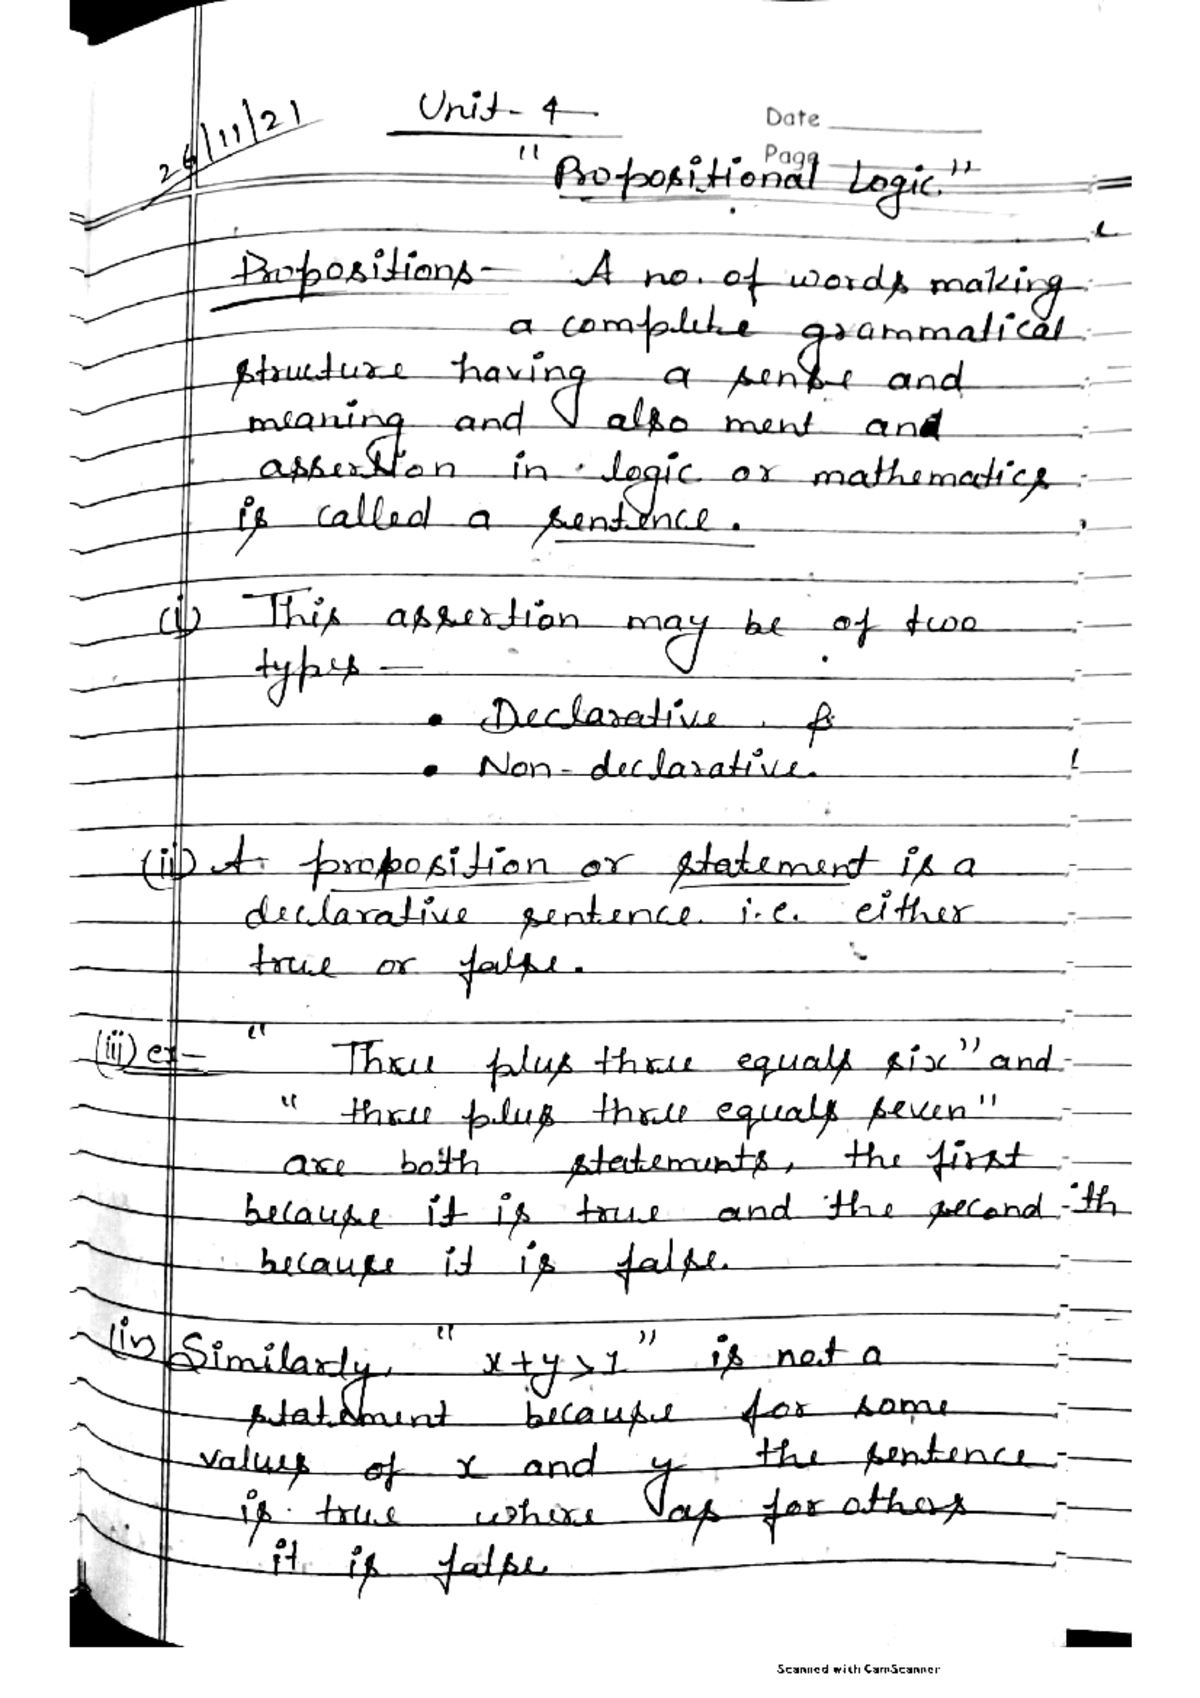 26/11/21
Unit-4
Date
Page
"Propositional Logic"
Propositions- A no. of words making
a complete grammatical
structure having a sense and
meaning and also ment and
assertion in logic or mathematics
is called a sentence.
(i) This assertion may be of two
types -
• Declarative &
• Non-declarative.
(ii) A proposition or statement is a
declarative sentence i.e. either
true or false.
(iii) ex- " Three plus three equals six" and
" three plus three equals seven"
are both statements, the first
because it is true and the second
because it is false.
(iv) Similarly, "x+y>1" is not a
statement because for some
values of x and y the sentence
is true where as for others
it is false
th
Scanned with CamScanner